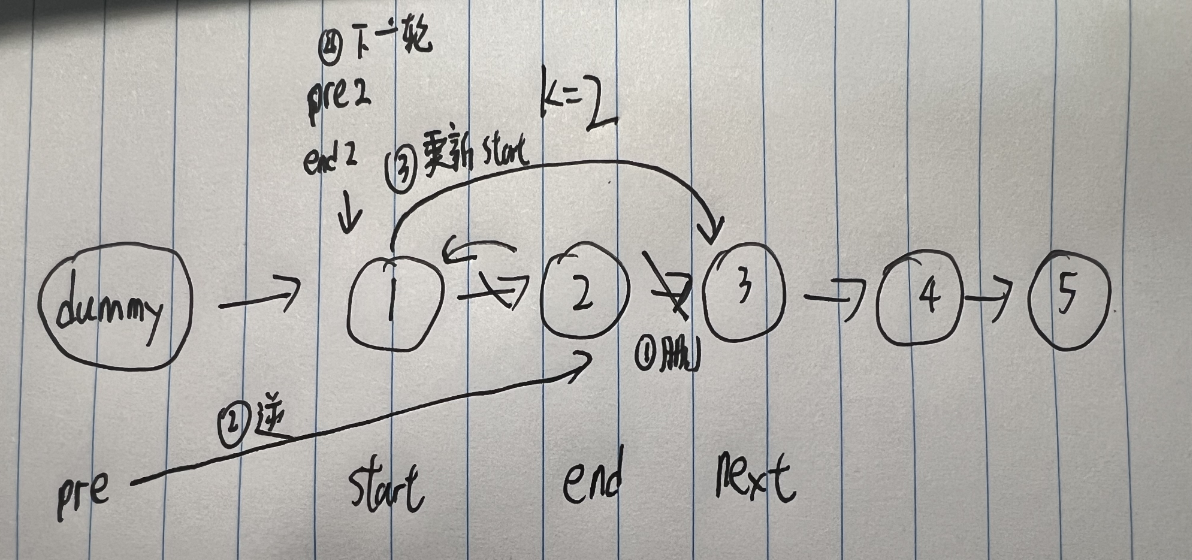 ④下一轮
pre 2
k=2
end 2
③更新 start
dummy
1
2
3
4
5
①删
②逆
pre
start
end
next